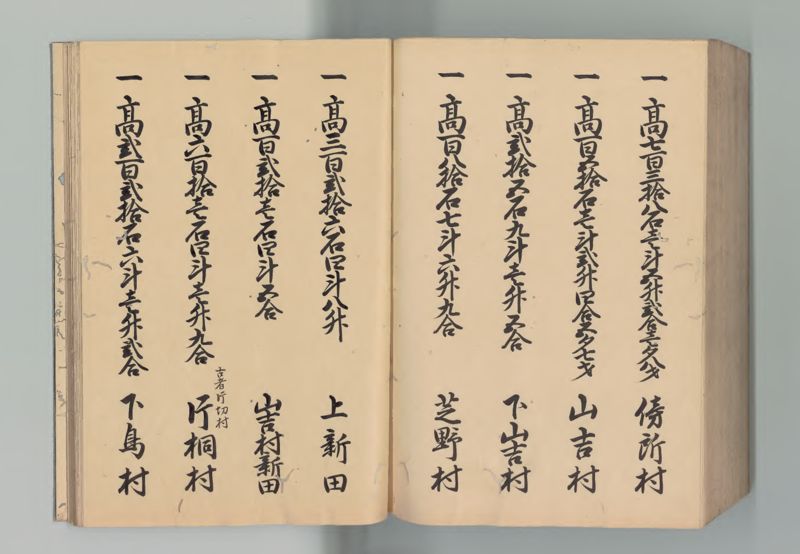 一高七百三拾八石壱斗五升弐合壱夕八才 傍所村
一高百五拾石壱斗弐升四合五夕七才 山吉村
一高弐拾五石九斗壱升五合 下山吉村
一高百八拾石七斗六升九合 芝野村
一高三百弐拾六石四斗八升 上新田
一高百弐拾壱石四斗五合 山吉村新田
古者片切村
一高六百拾壱石四斗壱升九合 片桐村
一高弐百弐拾石六斗壱升弐合 下島村